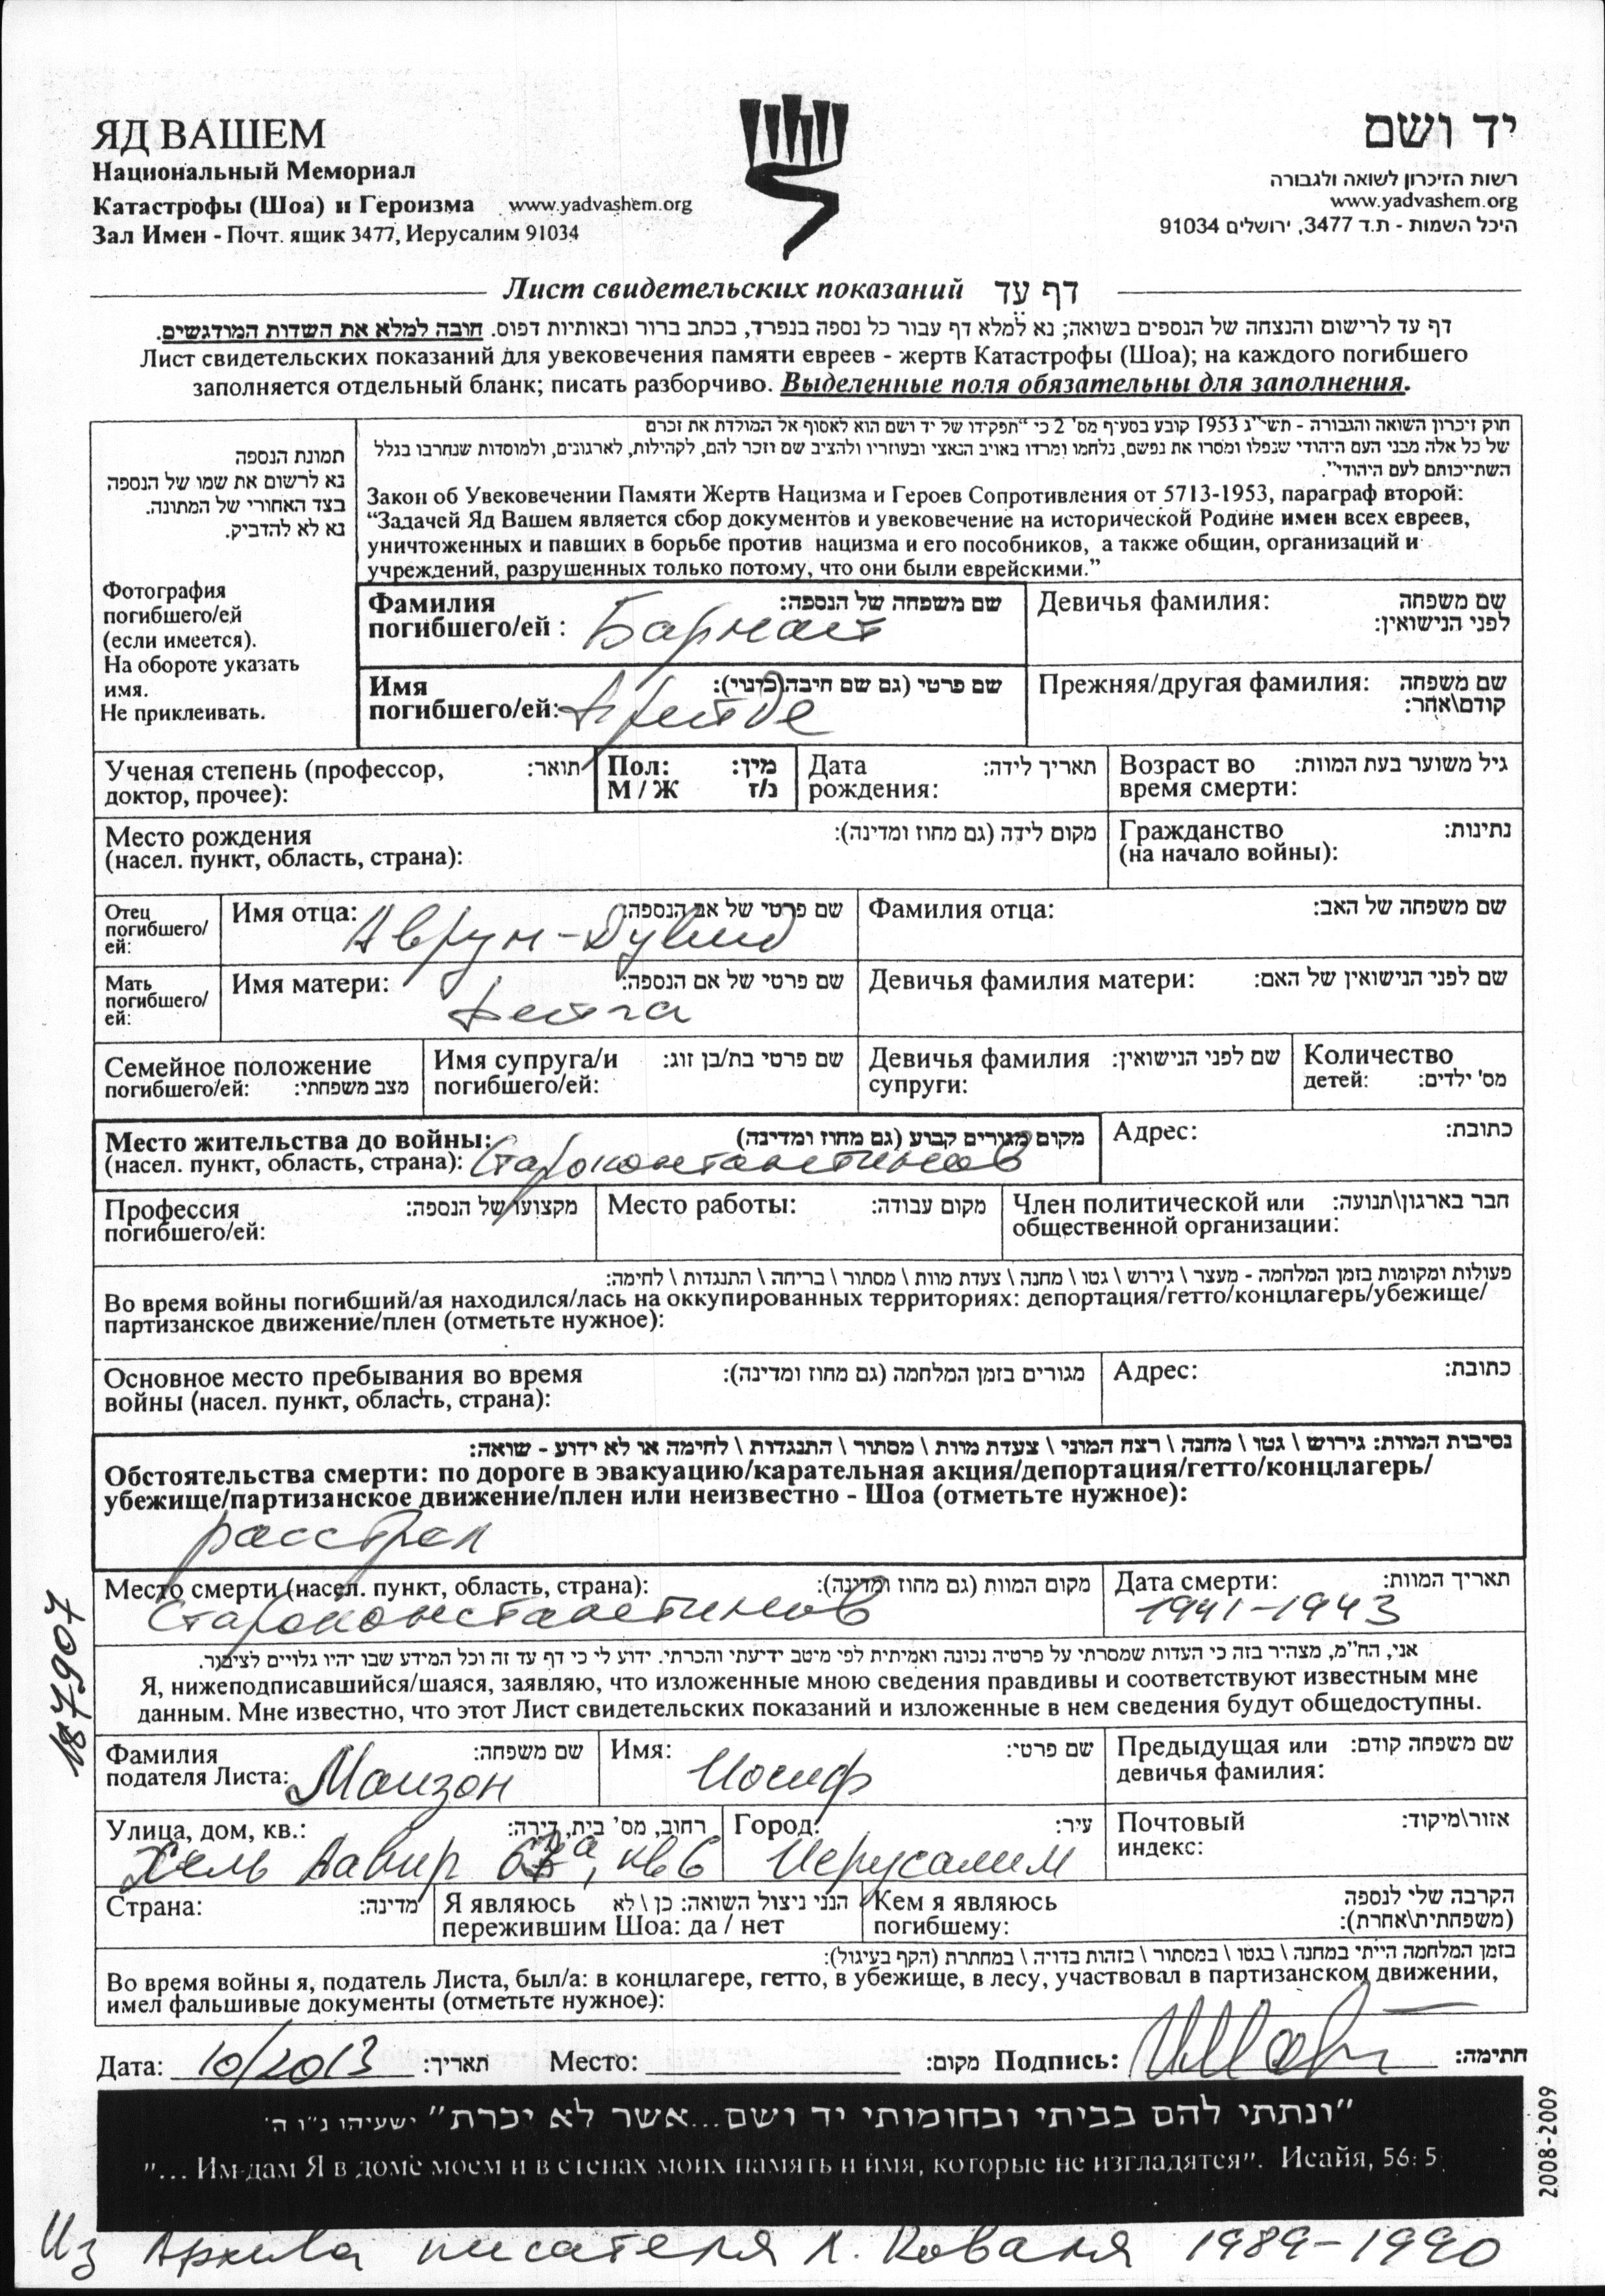 ЯД ВАШЕМ
Национальный Мемориал
Катастрофы (Шоа) и Героизма www.yadvashem.org
Зал Имен - Почт. ящик 3477, Иерусалим 91034
יד ושם
רשות הזיכרון לשואה ולגבורה
www.yadvashem.org
היכל השמות - ת.ד 3477, ירושלים 91034
Лист свидетельских показаний דף עד
דף עד לרישום והנצחה של הנספים בשואה; נא למלא דף עבור כל נספה בנפרד, בכתב ברור ובאותיות דפוס. חובה למלא את השדות המודגשים.
Лист свидетельских показаний для увековечения памяти евреев - жертв Катастрофы (Шоа); на каждого погибшего
заполняется отдельный бланк; писать разборчиво. Выделенные поля обязательны для заполнения.
תמונת הנספה
נא לרשום את שמו של הנספה
בצד האחורי של המתונה.
נא לא להדביק.
Фотография
погибшего/ей
(если имеется).
На обороте указать
имя.
Не приклеивать.
חוק זיכרון השואה והגבורה - תשי"ג 1953 קובע בסעיף מס' 2 כי "תפקידו של יד ושם הוא לאסוף אל המולדת את זכרם
של כל אלה מבני העם היהודי שנפלו ומסרו את נפשם, נלחמו ומרדו באויב הנאצי ובעוזריו ולהציב שם וזכר להם, לקהילות, לארגונים, ולמוסדות שנחרבו בגלל
השתייכותם לעם היהודי".
Закон об Увековечении Памяти Жертв Нацизма и Героев Сопротивления от 5713-1953, параграф второй:
“Задачей Яд Вашем является сбор документов и увековечение на исторической Родине имен всех евреев,
уничтоженных и павших в борьбе против нацизма и его пособников, а также общин, организаций и
учреждений, разрушенных только потому, что они были еврейскими.”
Фамилия שם משפחה של הנספה:
погибшего/ей : Барнат
Девичья фамилия: שם משפחה
לפני הנישואין:
Имя שם פרטי (גם שם חיבה\כינוי):
погибшего/ей:
Прежняя/другая фамилия: שם משפחה
קודם\אחר:
Ученая степень (профессор, תואר:
доктор, прочее):
Пол: מין:
М / Ж נ/ז
Дата תאריך לידה:
рождения:
Возраст во גיל משוער בעת המוות:
время смерти:
Место рождения מקום לידה (גם מחוז ומדינה):
(насел. пункт, область, страна):
Гражданство נתינות:
(на начало войны):
Отец
погибшего/
ей:
Имя отца: שם פרטי של אב הנספה:
Аврум-Дувид
Фамилия отца: שם משפחה של האב:
Мать
погибшего/
ей:
Имя матери: שם פרטי של אם הנספה:
Девичья фамилия матери: שם לפני הנישואין של האם:
Семейное положение
погибшего/ей: מצב משפחתי:
Имя супруга/и שם פרטי בת/בן זוג:
погибшего/ей:
Девичья фамилия שם לפני הנישואין:
супруги:
Количество
детей: מס' ילדים:
Место жительства до войны: מקום מגורים קבוע (גם מחוז ומדינה)
(насел. пункт, область, страна): Староконстантинов
Адрес: כתובת:
Профессия מקצועו של הנספה:
погибшего/ей:
Место работы: מקום עבודה:
Член политической или חבר בארגון\תנועה:
общественной организации:
פעולות ומקומות בזמן המלחמה - מעצר \ גירוש \ גטו \ מחנה \ צעדת מוות \ מסתור \ בריחה \ התנגדות \ לחימה:
Во время войны погибший/ая находился/лась на оккупированных территориях: депортация/гетто/концлагерь/убежище/
партизанское движение/плен (отметьте нужное):
Основное место пребывания во время מגורים בזמן המלחמה (גם מחוז ומדינה):
войны (насел. пункт, область, страна):
Адрес: כתובת:
נסיבות המוות: גירוש \ גטו \ מחנה \ רצח המוני \ צעדת מוות \ מסתור \ התנגדות \ לחימה או לא ידוע - שואה:
Обстоятельства смерти: по дороге в эвакуацию/карательная акция/депортация/гетто/концлагерь/
убежище/партизанское движение/плен или неизвестно - Шоа (отметьте нужное):
расстрел
Место смерти (насел. пункт, область, страна): מקום המוות (גם מחוז ומדינה):
Староконстантинов
Дата смерти: תאריך המוות:
1941-1943
אני, הח"מ, מצהיר בזה כי העדות שמסרתי על פרטיה נכונה ואמיתית לפי מיטב ידיעתי והכרתי. ידוע לי כי דף עד זה וכל המידע שבו יהיו גלויים לציבור.
Я, нижеподписавшийся/шаяся, заявляю, что изложенные мною сведения правдивы и соответствуют известным мне
данным. Мне известно, что этот Лист свидетельских показаний и изложенные в нем сведения будут общедоступны.
Фамилия שם משפחה:
подателя Листа: Маизон
Имя: שם פרטי:
Иосиф
Предыдущая или שם משפחה קודם:
девичья фамилия:
Улица, дом, кв.: רחוב, מס' בית, דירה:
Хель Авир 67а, кв 6
Город: עיר:
Иерусалим
Почтовый אזור\מיקוד:
индекс:
Страна: מדינה:
Я являюсь הנני ניצול השואה: כן \ לא
пережившим Шоа: да / нет
Кем я являюсь הקרבה שלי לנספה
погибшему: (משפחתית\אחרת):
בזמן המלחמה הייתי במחנה \ בגטו \ במסתור \ בזהות בדויה \ במחתרת (הקף בעיגול):
Во время войны я, податель Листа, был/а: в концлагере, гетто, в убежище, в лесу, участвовал в партизанском движении,
имел фальшивые документы (отметьте нужное):
Дата: 10/2013 תאריך: Место: מקום: Подпись: חתימה:
"ונתתי להם בביתי ובחומותי יד ושם...אשר לא יכרת" ישעיהו נ"ו ה'
"... Им дам Я в доме моем и в стенах моих память и имя, которые не изгладятся". Исайя, 56: 5
Из Архива писателя Л. Коваля 1989-1990
187907
2008-2009